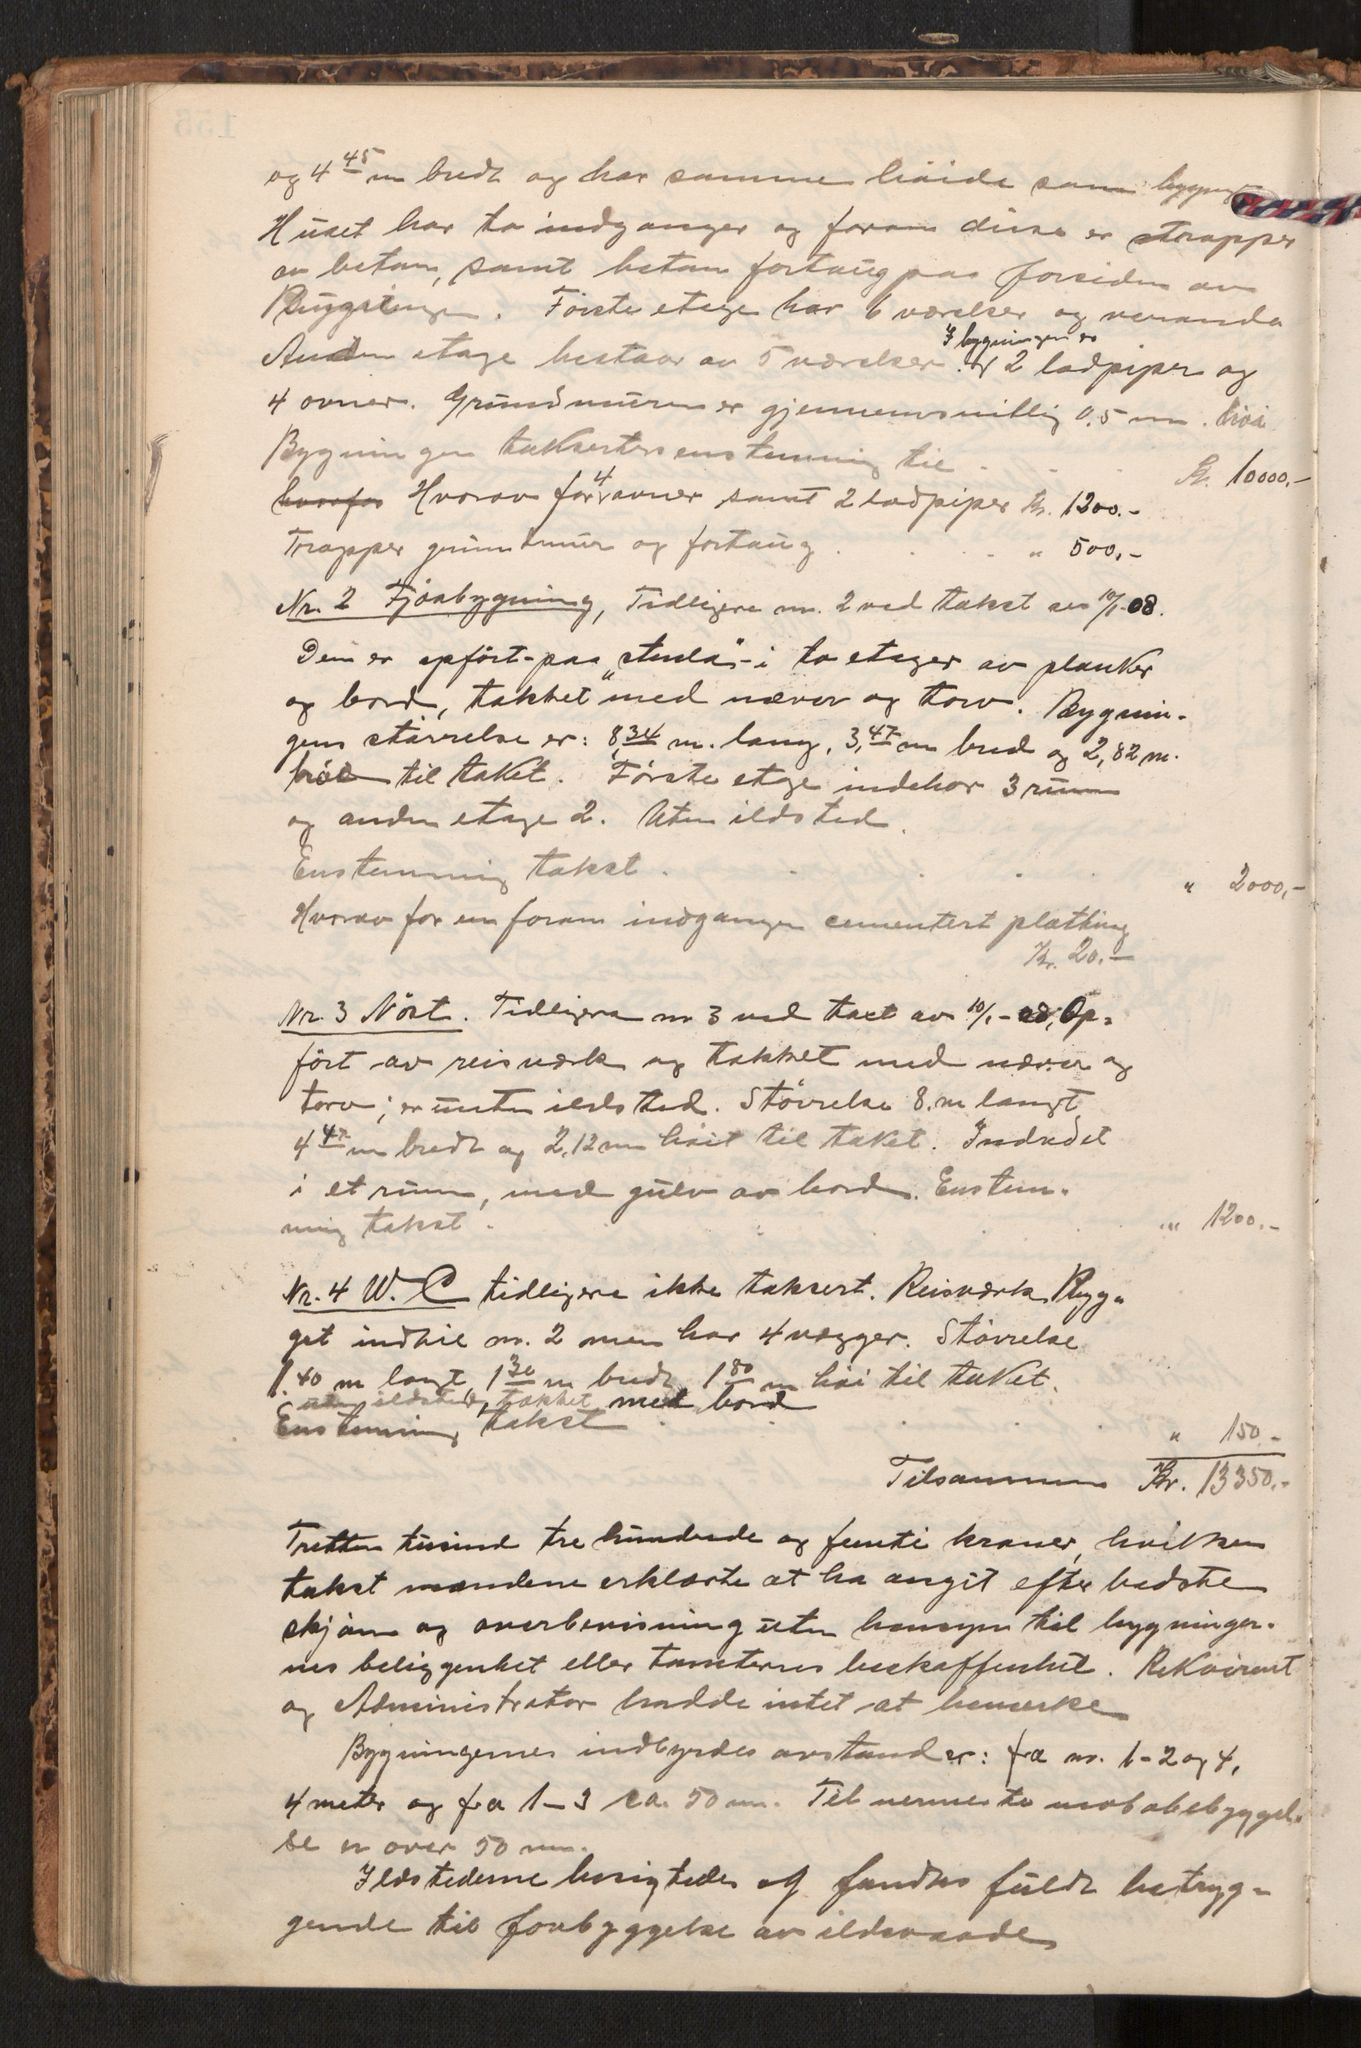 og 4 45 m bredt og har samme høide som bygnin
Huset har to indganger og foran disse er trapper
av betan, samt betan fortaug paa forsiden av
Bygningen. Første etage har 6 værelser og veranda
I bygningen er
Anden etage bestaar av 5 værelser. 2 lodpiper og
4 ovner. Grundmuren er gjennemsnitlig 0,5 m. høi
Bygningen takseres enstemmig til . . . Kr. 10000,-
hvorfor Hvorav for 4 ovner samt 2 lodpiper kr. 1200.-
Trapper grundmur og fortaug . . . " 500,-
Nr. 2 Fjøsbygning, Tidligere nr. 2 ved takst av 10/1-08.
Den er opført paa „stula" i to etager av planker
og bord, tækket med næver og torv. Bygnin-
gens størrelse er: 8,34 m. lang, 3,47 m bred og 2,82 m.
høi til taket. Første etage indehar 3 rum
og anden etage 2. Uten ildsted.
Enstemmig takst . . . . " 2000,-
Hvorav for en foran indgangen cementert platting
Kr. 20.-
Nr. 3 Nöst. Tidligere nr 3 ved taxt av 10/1-08, Op-
ført av reisværk og tækket med næver og
torv; er uten ildsted. Størrelse 8. m langt,
4 47 m bredt og 2,12 m høit til taket. Indredet
i et rum, med gulv av bord. Enstem-
mig takst . . . . " 1200.-
Nr. 4 W. C tidligere ikke taksert. Reisværk Byg-
get indtil nr. 2 men har 4 vægger. Størrelse
1.40 m langt, 1 30 m bredt, 1 80 m høi til taket.
uten ildsted, tækket med bord
Enstemmig takst . . . " 150.-
Tilsammen Kr. 13350.-
Tretten tusind tre hundrede og femti kroner, hvilken
takst mændene erklærte at ha angit efter bedste
skjøn og overbevisning uten hensyn til bygninger-
nes beliggenhet eller tomternes beskaffenhet. Rekvirent
og Administrator hadde intet at bemerke
Bygningernes indbyrdes avstand er: fra nr. 1-2 og 4,
4 meter og fra 1-3 ca. 50 m. Til nermeste nabobebyggel-
se er over 50 m.
Ildstederne besigtedes og fandtes fuldt betryg-
gende til forebyggelse av ildsvaade